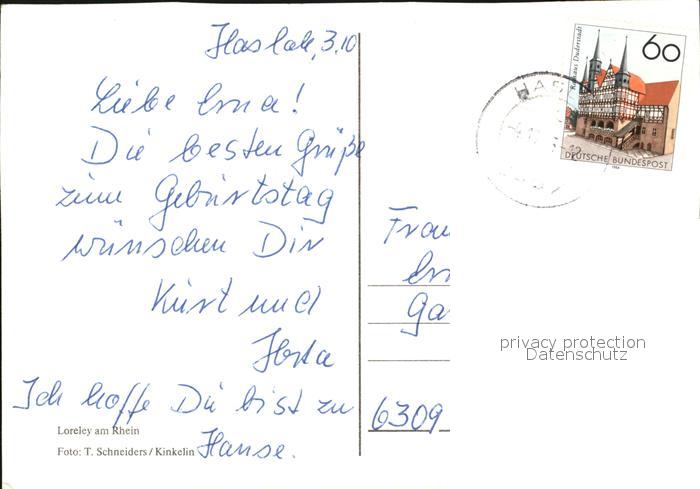 Haslach, 3.10
Liebe Erna!
Die besten Grüße
zum Geburtstag
wünschen Dir
Kurt und
Herta
Ich hoffe Du bist zu
Hause.
Loreley am Rhein
Foto: T. Schneiders / Kinkelin
60
Rathaus Duderstadt
DEUTSCHE BUNDESPOST
HAS
Frau
Er
Ga
6309
privacy protection
Datenschutz